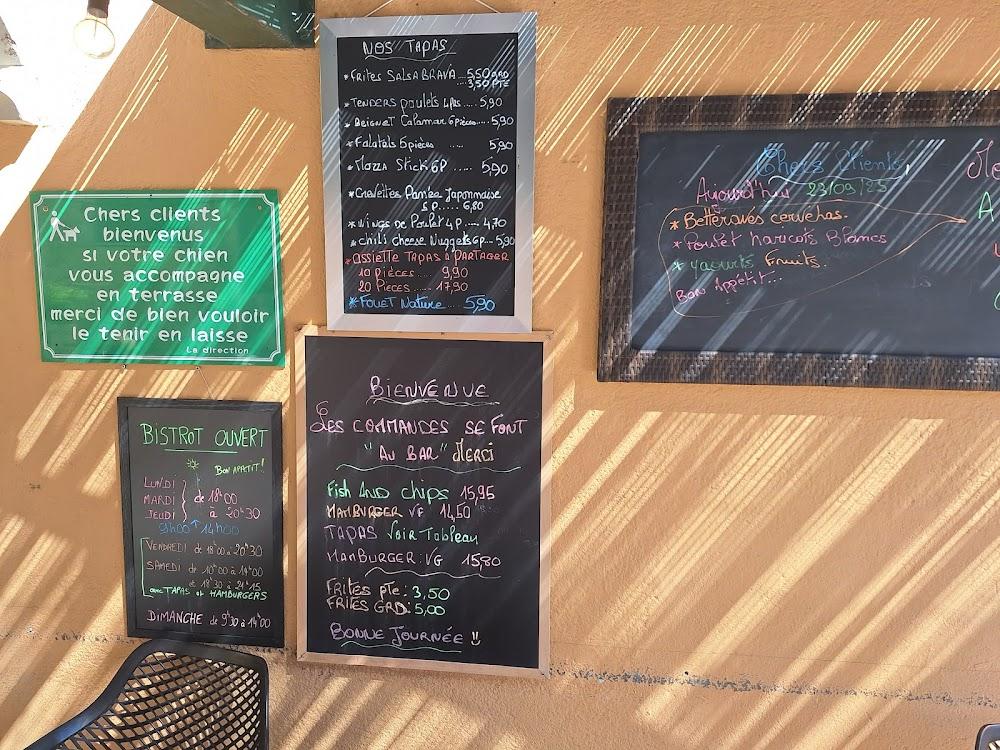 NOS TAPAS
*FRITES SALSA BRAVA....5,50 GRD
....3,50 PTE
*TENDERS poulets 4 ps.....5,90
*Beignet Calamar 6 pièces.....5,90
*Falafels 5 pièces ..... 5,90
*Mozza Stick 6P ..... 5,90
*Crevettes Panée Japonnaise
5 P..... 6,80
*Wings de Poulet 4 P.... 4,70
*chili cheese Nuggets 6p... 5,90
*ASSIETTE TAPAS à PARTAGER
10 PIÈCES..... 9,90
20 PIECES..... 17,90
*FOUET Nature..... 5,90
Chers clients
bienvenus
si votre chien
vous accompagne
en terrasse
merci de bien vouloir
le tenir en laisse
La direction
Chers Clients,
Aujourd'hui 23/09/25
*Betteraves cervelas.
*Poulet haricots Blancs
*yaourts Fruits.
Bon Appetit...
BISTROT OUVERT
BON APPETIT!
LUNDI
MARDI
JEUDI
de 18h00
à 20h30
9h00 14h00
VENDREDI de 18h00 à 20h30
SAMEDI de 10h00 à 14h00
et 18h30 à 21h15
avec TAPAS et HAMBURGERS
DIMANCHE de 9h30 à 14h00
BIENVENUE
LES COMMANDES SE FONT
"AU BAR" Merci
Fish AND chips 15,95
HAMBURGER VF 14,50
TAPAS Voir Tableau
HAMBURGER: VG 15,80
FRITES pte: 3,50
FRITES GRD: 5,00
BONNE JOURNÉE